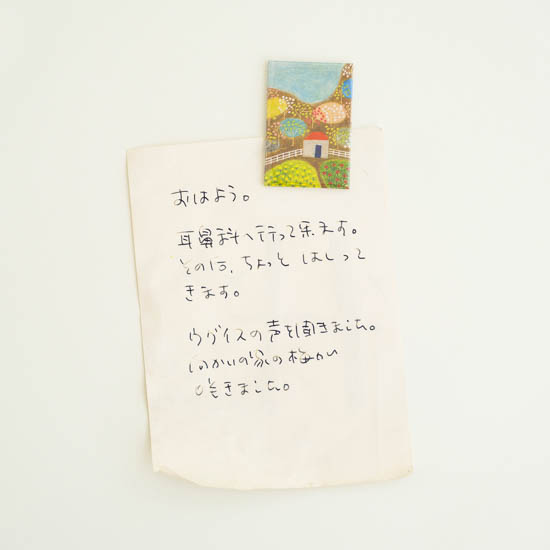 おはよう。
耳鼻科へ行って来ます。
その后、ちょっと はしって
きます。
ウグイスの声を聞きました。
向かいの家の梅が
咲きました。